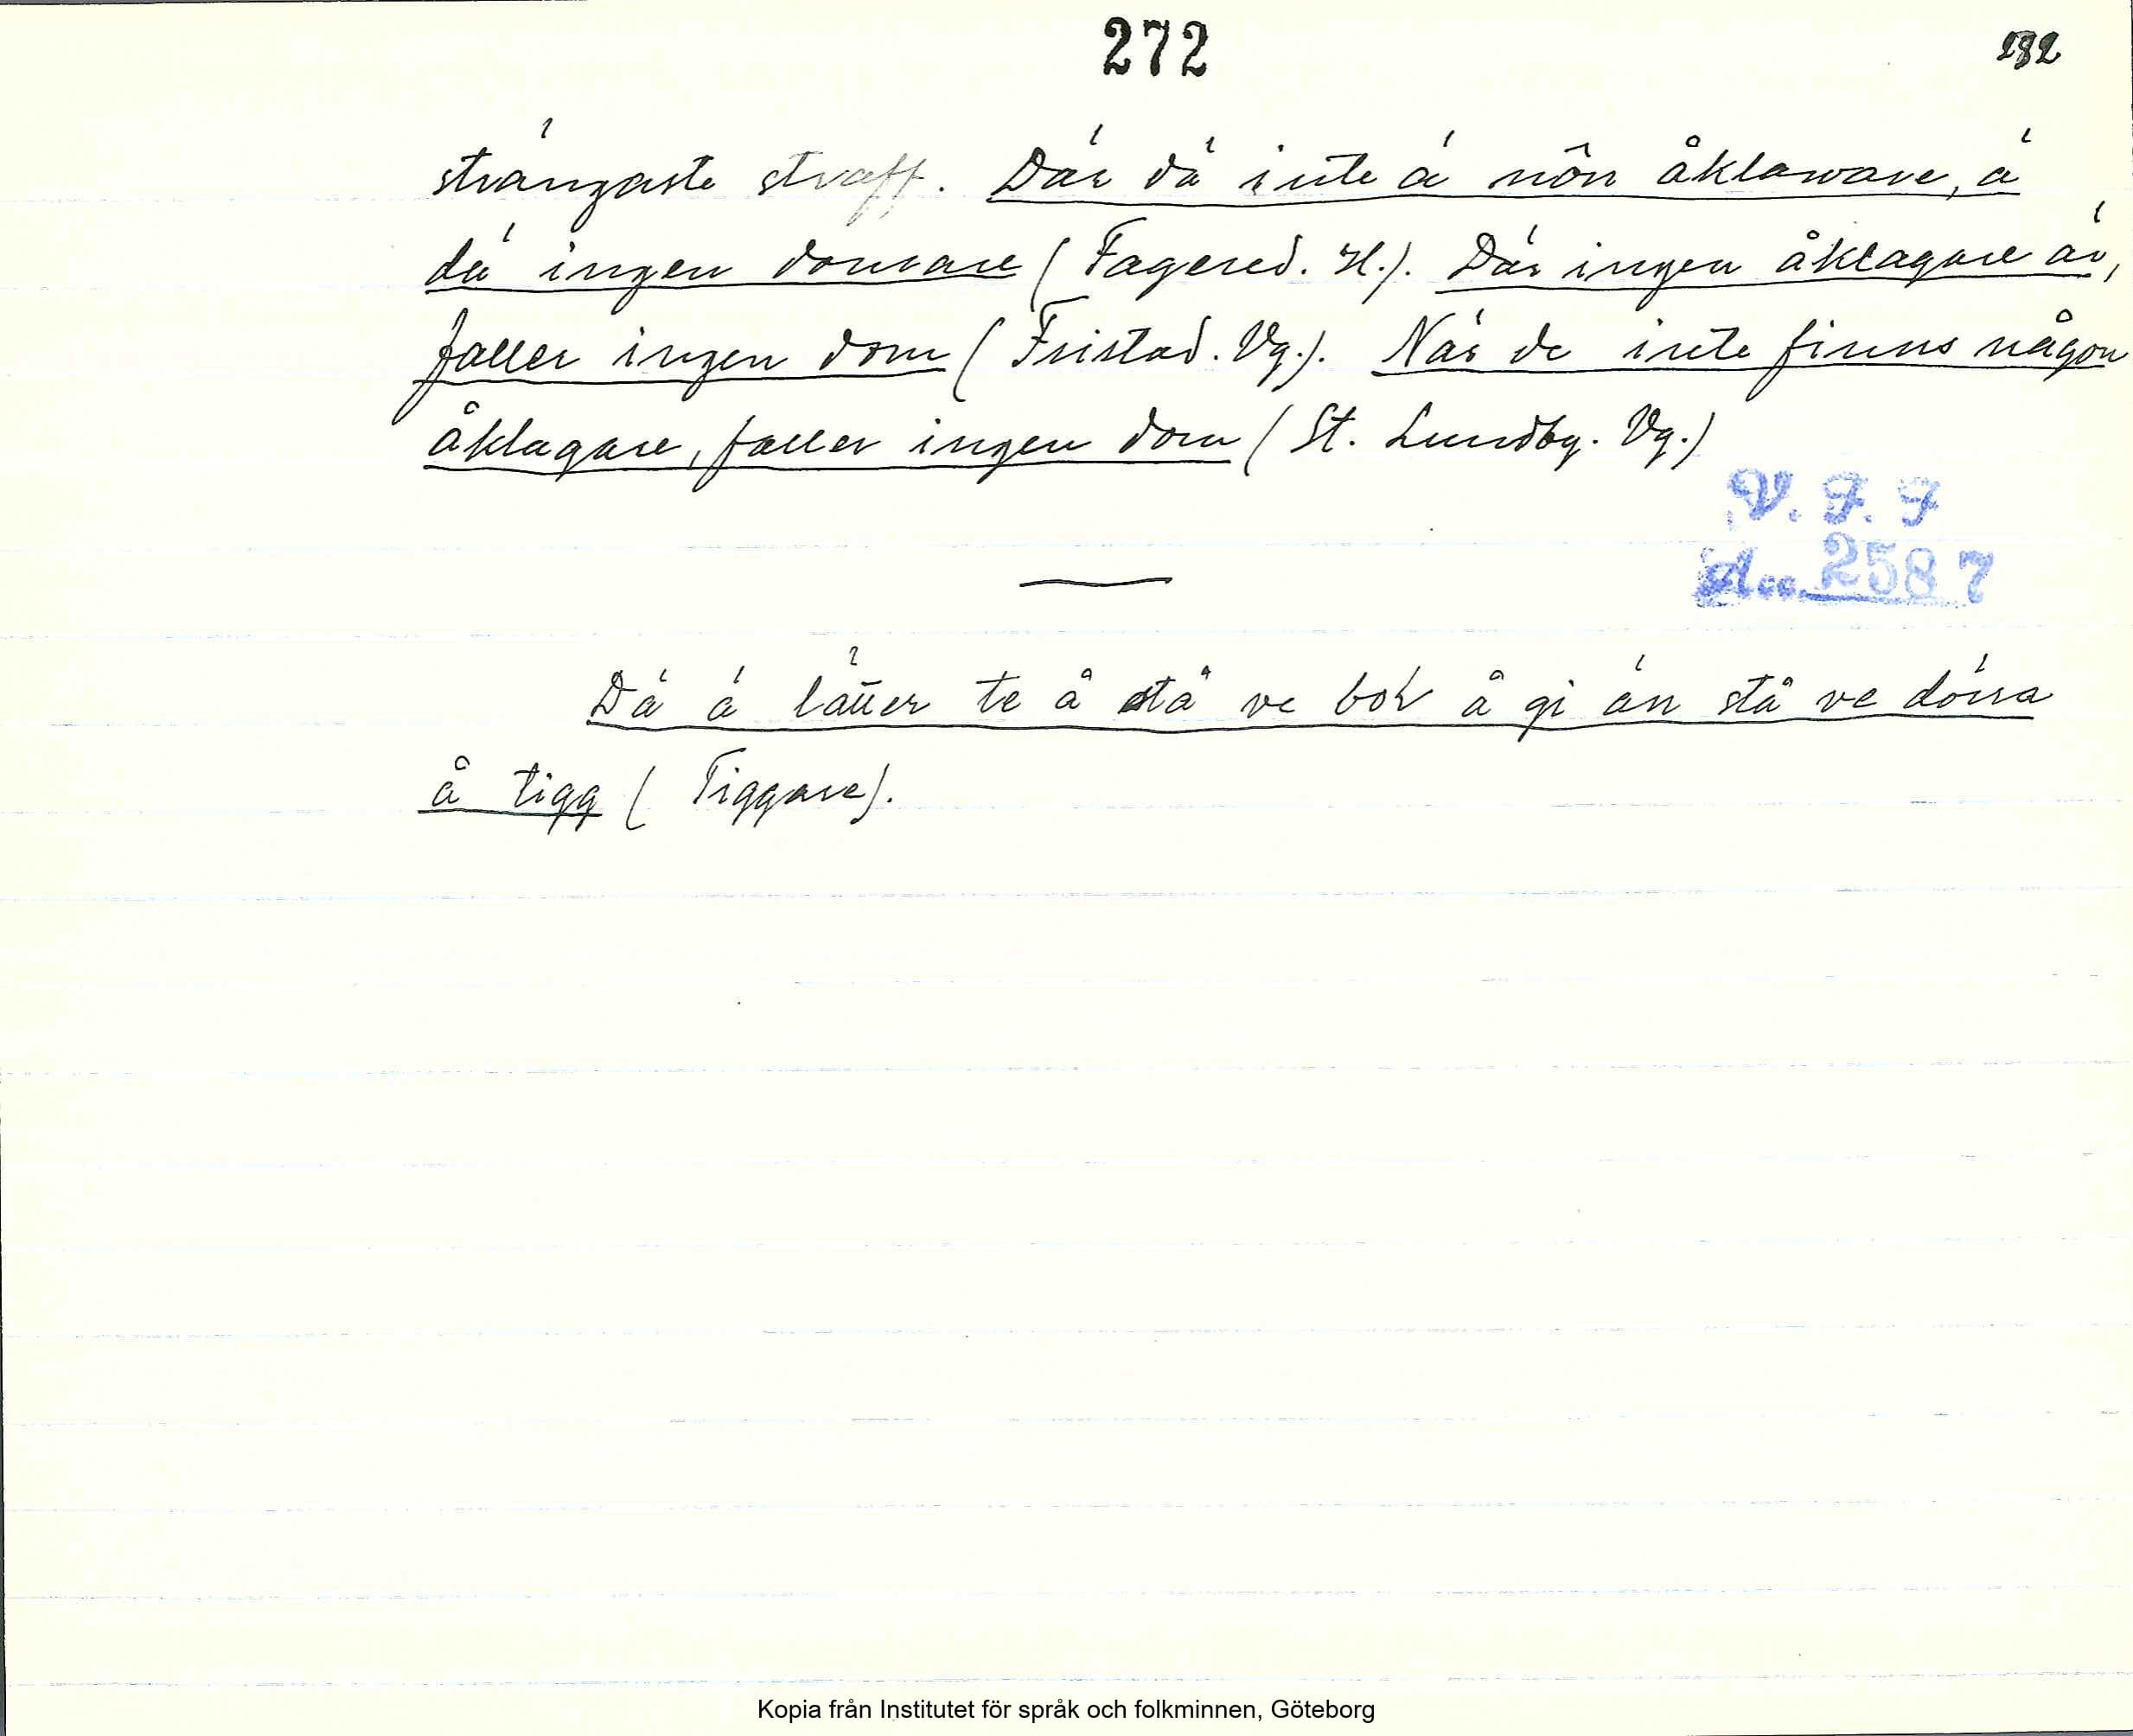 272
232
strängaste straff. Där dä inte ä nôn åklaware, ä
dä ingen domare (Fagered. H.). Där ingen åklagare är,
faller ingen dom (Fristad. Vg.). När de inte finns någon
åklagare, faller ingen dom (St. Lundby. Vg.)
V. F. F
Acc. 2587
Dä ä lätter te å stå ve bol å gi än stå ve dörra
å tigg (Tiggare).
Kopia från Institutet för språk och folkminnen, Göteborg